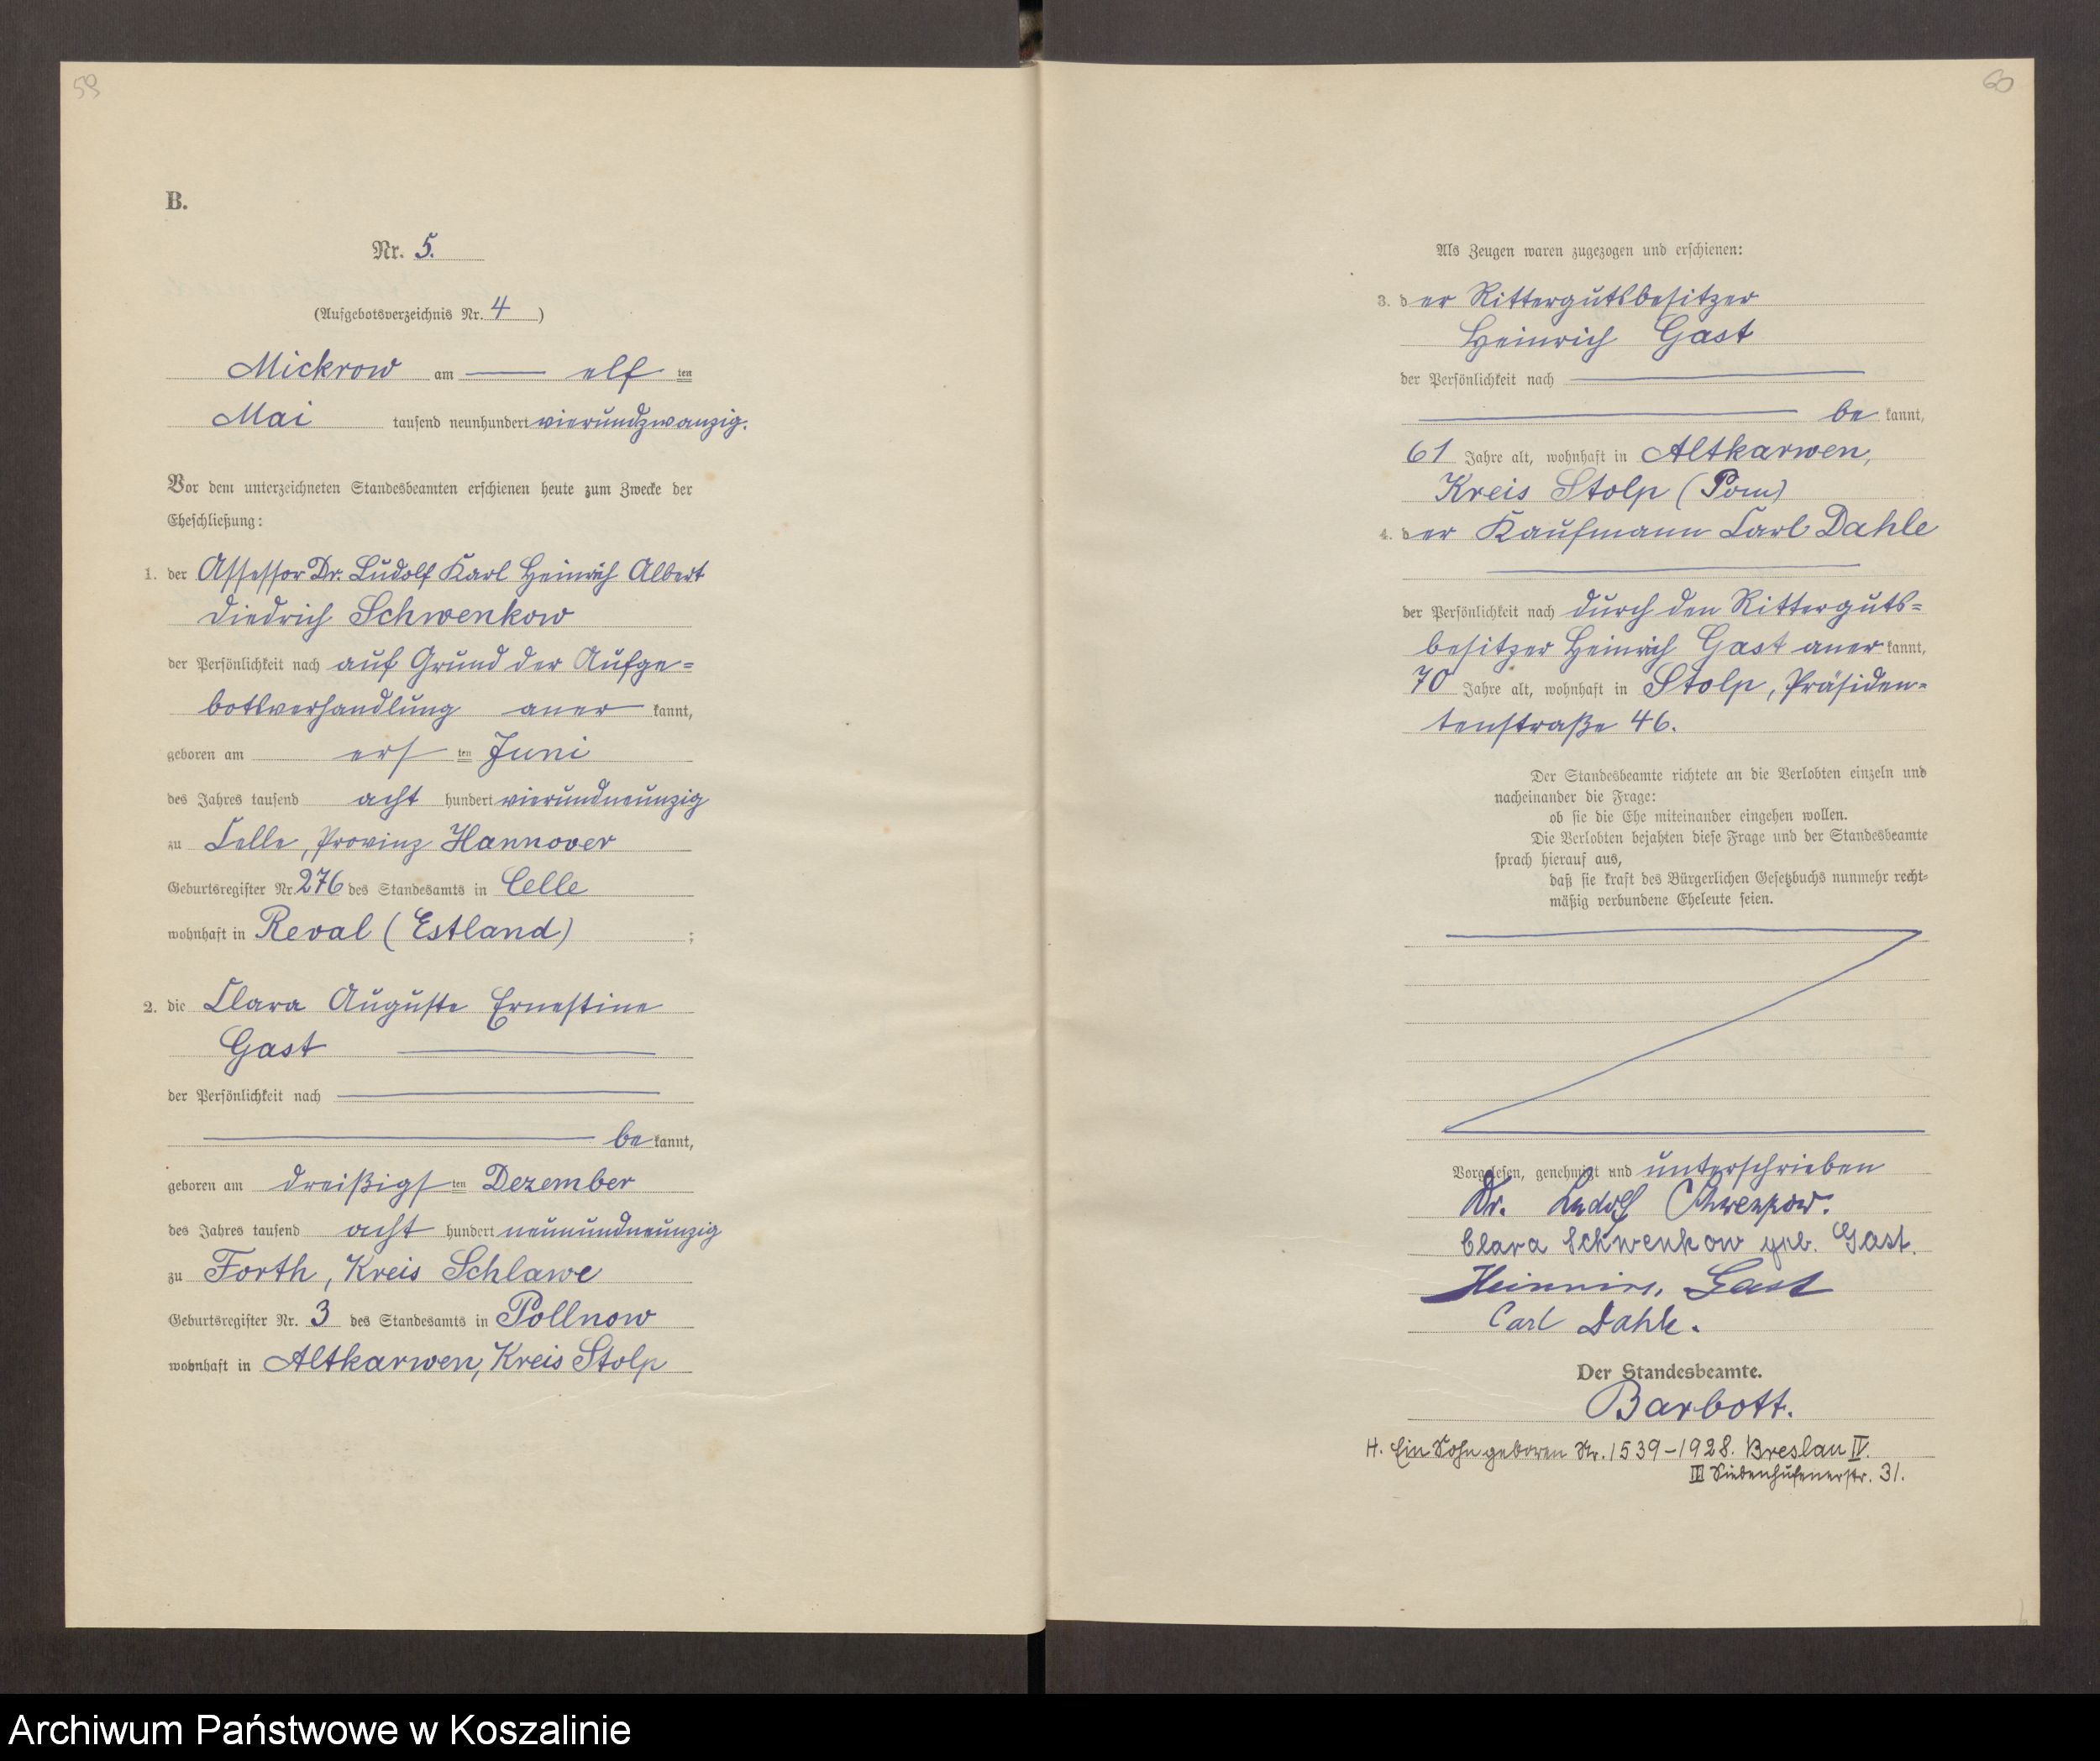 59
B.
Nr. 5.
(Aufgebotsverzeichnis Nr. 4)
Mickrow am — elf ten
Mai tausend neunhundert vierundzwanzig.
Vor dem unterzeichneten Standesbeamten erschienen heute zum Zwecke der
Eheschließung:
1. der Assessor Dr. Ludolf Karl Heinrich Albert
Diedrich Schwenkow
der Persönlichkeit nach auf Grund der Aufge=
botsverhandlung aner kannt,
geboren am ers ten Juni
des Jahres tausend acht hundert vierundneunzig
zu Celle, Provinz Hannover
Geburtsregister Nr. 276 des Standesamts in Celle
wohnhaft in Reval (Estland) ;
2. die Clara Auguste Ernestine
Gast —
der Persönlichkeit nach —
— be kannt,
geboren am dreißigs ten Dezember
des Jahres tausend acht hundert neunundneunzig
zu Forth, Kreis Schlawe
Geburtsregister Nr. 3 des Standesamts in Pollnow
wohnhaft in Altkarwen, Kreis Stolp
60
Als Zeugen waren zugezogen und erschienen:
3. der Rittergutsbesitzer
Heinrich Gast
der Persönlichkeit nach —
— be kannt,
61 Jahre alt, wohnhaft in Altkarwen,
Kreis Stolp (Pom)
4. der Kaufmann Carl Dahle
—
der Persönlichkeit nach durch den Ritterguts=
besitzer Heinrich Gast aner kannt,
70 Jahre alt, wohnhaft in Stolp, Präsiden=
tenstraße 46.
Der Standesbeamte richtete an die Verlobten einzeln und
nacheinander die Frage:
ob sie die Ehe miteinander eingehen wollen.
Die Verlobten bejahten diese Frage und der Standesbeamte
sprach hierauf aus,
daß sie kraft des Bürgerlichen Gesetzbuchs nunmehr recht=
mäßig verbundene Eheleute seien.
Vorgelesen, genehmigt und unterschrieben
Dr. Ludolf Schwenkow.
Clara Schwenkow geb. Gast.
Heinrich Gast
Carl Dahle.
Der Standesbeamte.
Barbott.
H. Ein Sohn geboren Nr. 1539-1928. Breslau IV.
III Siebenhufenerstr. 31.
Archiwum Państwowe w Koszalinie